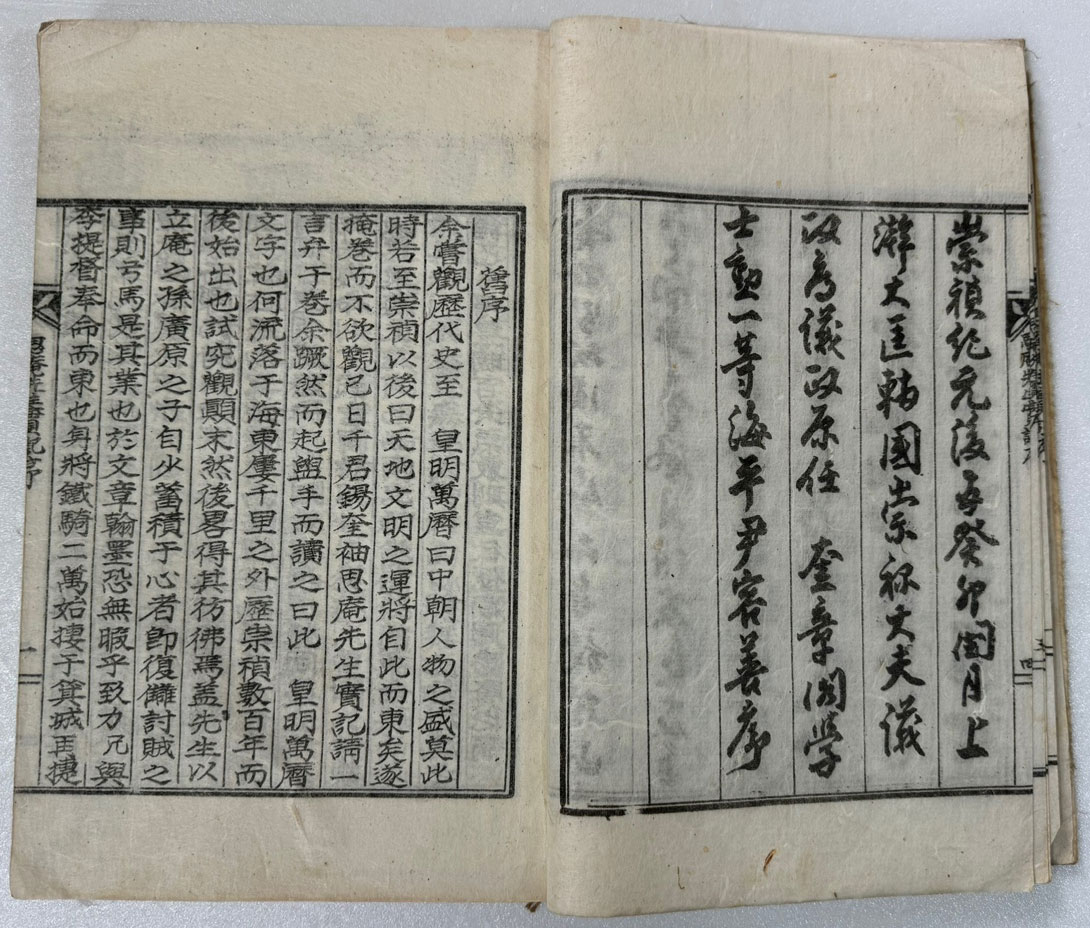 崇禎紀元後五癸卯閏月上
澣大匡輔國崇祿大夫議
政府議政原任　奎章閣學
士勳一等海平尹容善序
舊序
余嘗觀歷代史至　皇明萬曆曰中朝人物之盛莫此
時若至崇禎以後曰天地文明之運將自此而東矣遂
掩卷而不欲觀已日千君錫奎袖思庵先生實記請一
言弁于卷余蹶然而起盥手而讀之曰此　皇明萬曆
文字也何流落于海東屢千里之外歷崇禎數百年而
後始出也試究觀顚末然後畧得其彷彿焉盖先生以
立庵之孫廣原之子自少蓄積于心者卽復讎討賊之
事則弓馬是其業也於文章翰墨恐無暇乎致力兄與
李提督奉命而東也身將鐵騎二萬始摟于箕城再捷
思庵先生實記序
一